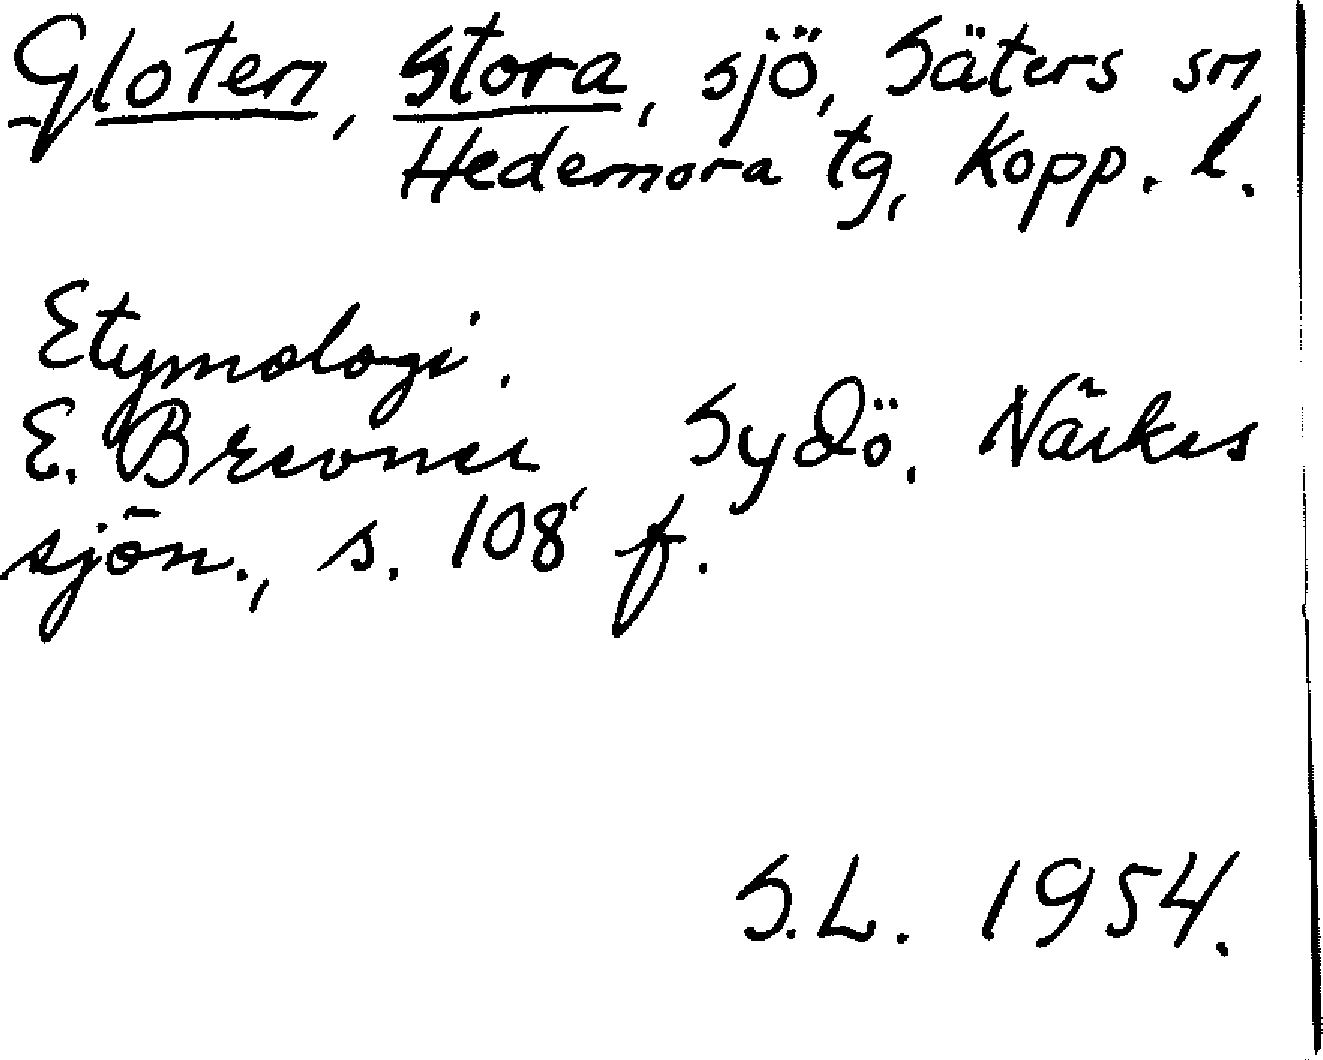 Gloten, Stora, sjö, Säters sn,
Hedemora tg, Kopp. l.
Etymologi.
E. Brevner Sydö. Närkes
sjön., s. 108 f.
S.L. 1954.